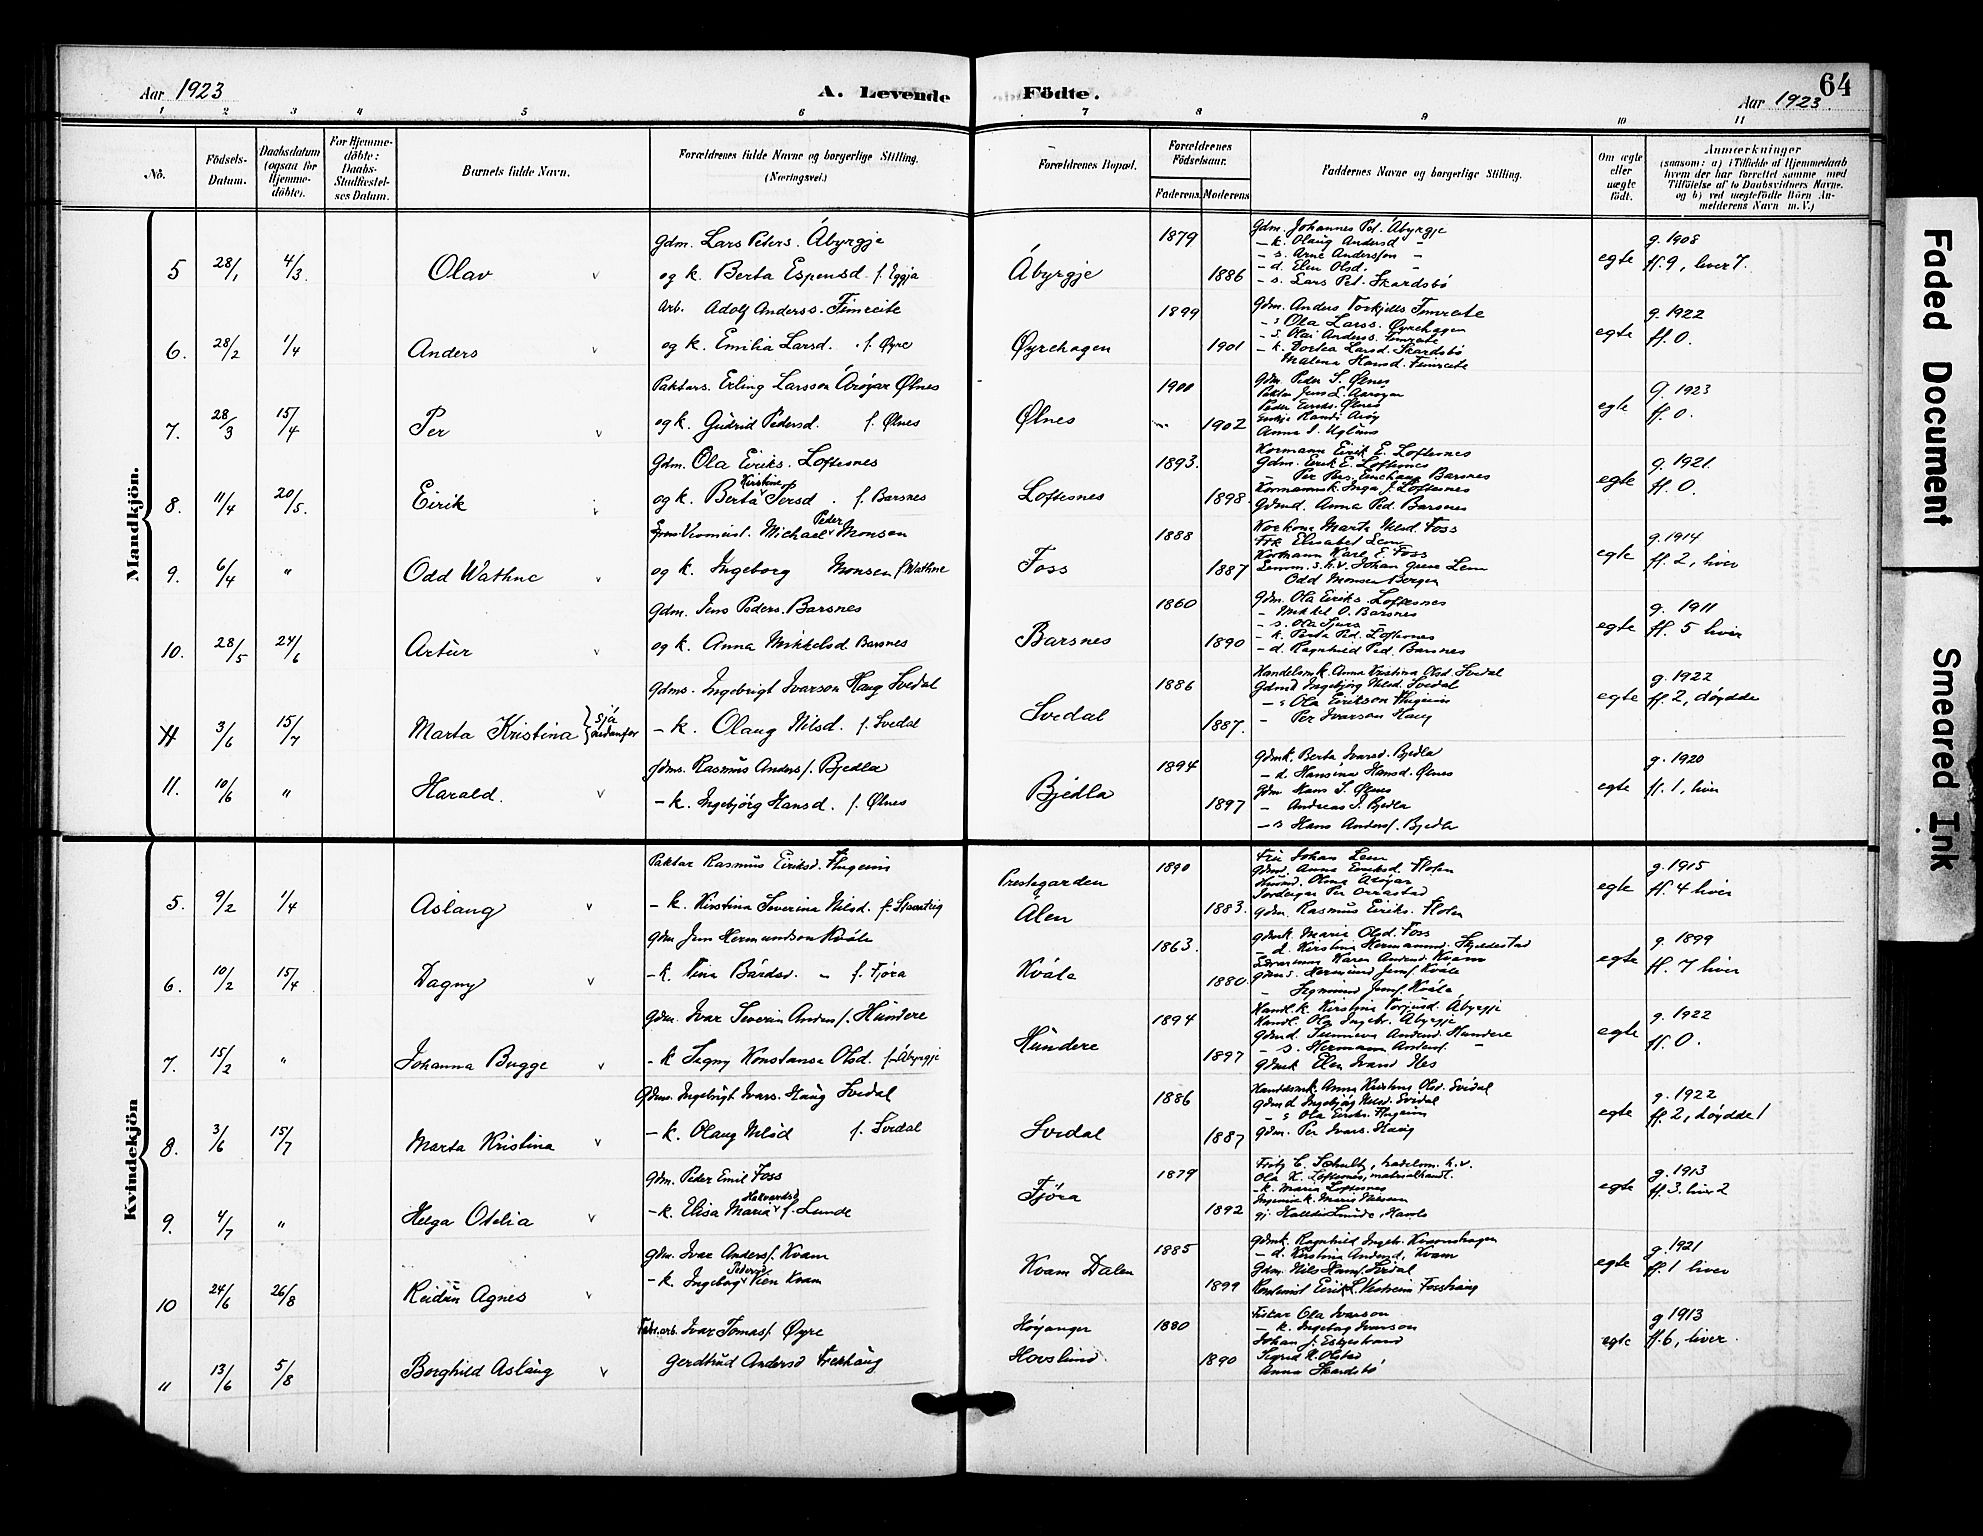 64
Aar 1923 A. Levende Födte. Aar 1923
1 2 3 4 5 6 7 8 9 10 11
No.
Födsels-Datum.
Daabsdatum (ogsaa for Hjemme-döbte).
For Hjemme-döbte: Daabs-Stadfæstel-ses Datum.
Barnets fulde Navn.
Forældrenes fulde Navne og borgerlige Stilling. (Næringsvei.)
Forældrenes Bopæl.
Forældrenes Födselsaar.
Faderens. Moderens
Faddernes Navne og borgerlige Stilling.
Om ægte eller uægte födt.
Anmærkninger
(saasom: a) i Tilfælde af Hjemmedaab hvem der har forrettet samme med Tilföielse af to Daabsvidners Navne. og b) ved uægtefödte Börn An-melderens Navn m.V.)
Mandkjön.
5 28/1 4/3. Olav v
Gdm. Lars Peters. Åbyrgje
og k. Berta Espensd. f. Eggja
Åbyrgje 1879 1886
Gdm. Johannes Ped. Åbyrgje
- k. Olaug Andersd -
- s. Arne Anderssen -
- d. Elen Olsd. -
- s. Lars Ped. Skardsbö
egte g. 1908
ff. 9, lever 7.
6. 28/2 1/4 Anders v
Arb. Adolf Anderss. Fimreite
og k. Emilia Larsd. f. Øyre
Øyrehagen 1899 1901
Gdm. Anders Torkjells Fimreite
- s Ola Larss. Øyrehagen
- s. Olai Anderss. Fimreite
- k. Dortea Larsd. Skardsbö
Malena Hansd. Fimreite
egte g. 1922
ff. 0.
7. 28/3 15/4 Per v
Paktars. Erling Larsson Åröyar Ølnes
og k. Gudrid Pedersd. f. Ølnes
Ølnes 1900 1902
Gdm. Peder S. Ølnes
Paktar Jens L. Aaröyan
Peder Eiriks. Ølnes
Anna S.
egte G. 1923
ff. 0.
8. 11/4 20/5. Eirik
Gdm. Ola Eiriks. Loftesnes
og k. Berta Kirstine Persd. f. Barsnes
Loftesnes 1893. 1898.
Kormann Eirik E. Loftesnes
Gdm. Eirik E. Loftesnes
- Per Pers. Barsnes
Kormannsk. Inga J. Loftesnes
Gdmd. Anna Ped. Barsnes
egte g. 1921.
ff. 0.
9. 6/4 " Odd Wathne v
Michael Peder Monsen
og k. Ingeborg Monsen f. Wathne
Foss 1888 1887
Marta Nilsd. Foss
Frk Elisabet Lem
Kormann Karl E. Foss
Lensm. s. h.v. Johan Lem
Odd Monsen Bergen
egte g. 1914
ff. 2, liver
10. 28/5 24/6 Artur v
Gdm. Jens Peders. Barsnes
og k. Anna Mikkelsd Barsnes
Barsnes 1860 1890
Gdm. Ola Eiriks. Loftesnes
- Mikkel O. Barsnes
- s. Ola Sjurs -
- k. Berta Ped. Loftesnes
- d. Ragnhild Ped. Barsnes
egte g. 1911
ff. 5 liver
11 3/6 15/7 Marta Kristina } sjå nedanfor
Gdms. Ingebrigt Ivarson Haug Svedal
- k. Olaug Nilsd. f. Svedal
Svedal 1886 1887.
Handelsmk. Anna Kristina Olsd. Svedal
Gdmd Ingebjörg Nilsd. Svedal
- s Ola Eirikson Flugeim
- Per Ivarson Haug
egte g. 1922
ff. 2, döydde
11. 10/6 " Harald. v
Gdms. Rasmus Anders f. Bjedla
- k. Ingebjörg Hansd. f. Ølnes
Bjedla 1894 1897
Gdmk. Berta Ivarsd. Bjedla
- d. Hansina Hansd. Ølnes
Gdm Hans S. Ølnes
- Andreas I. Bjedla
- s Hans Anders f. Bjedla
egte g. 1920
ff. 1, liver
Kvindekjön
5. 9/2 1/4 Aslaug v
Paktar Rasmus Eiriksd. Flugeim
- k. Kirstina Severina Nilsd.
Prestegarden
Ålen 1890 1883.
Fru Johan Lem
Gdmd. Anna Eiriksd. Flolen
Jordeigar Per Orrastad
Gdm. Rasmus Eiriks. Flolen
egte g. 1915
ff. 4 liver
6. 10/2 15/4 Dagny v
Gdm Jens Hermundson Kvåle
- k. Nina Bårdsd. - f. Fjöra
Kvåle 1863. 1880.
Gdmk. Marie Olsd. Foss
- d. Kirstina Hermunnd. Skjeldestad
Karen Andersd. Kvam
Gdms. Hermund Jens f. Kvåle
- Sigmund Jens f. Kvåle
egte g. 1899
ff. 7 liver
7. 15/2 " Johanna Bugge v
Gdm. Ivar Severin Anders f. Hundere
- k Segny Konstanse Olsd. f. Åbyrgje
Hundere 1894 1897
Handl. k. Kirstina Torjusd. Åbyrgje
Handl. Ola Ingebr. Åbyrgje
Gdmd. Sunneva Andersd. Hundere
- s. Hermann Anders f. -
Gdmk Elen Ivarsd Nes
egte g. 1922
ff. 0.
8. 3/6 15/7 Marta Kristina v
Gdms. Ingebrigt Ivars. Haug Svedal
- k. Olaug Nilsd f. Svedal
Svedal 1886 1887
Handelsmk. Anna Kristina Olsd. Svedal
Gdmd Ingebjörg Nilsd. Svedal
- s Ola Eiriks. Flugeim
Gdm. Per Ivars. Haug
egte g. 1922
ff 2, döydde 1
9. 4/7 " Helga Otelia v
Gdm. Peder Emil Foss
- k. Elisa Maria Halvardsd f. Lunde
Fjöra 1879 1892
Fritz C. Schultz, handelsm. h.v.
Ola K. Loftesnes, materialhandl.
- k. Maria Loftesnes
egte g. 1913
ff. 3. liver 2
10 24/6 26/8 Reidun Agnes v
Gdm. Ivar Anders f. Kvam
- k. Ingeborg Pedersd. Vien Kvam
Kvam Dalen 1885 1899
Gdmk. Ragnhild Ingebr. Kvamshagen
- d. Kirstina Andersd, Kvam
Gdm. Nils Hans f. Svedal
egte g. 1921
ff. 1 liver
" 13/6 5/8 Borghild Aslaug v
Fabr.arb. Ivar Tomas f. Øyre
Gerdtrud Andersd
Höyanger
Hovslund. 1880 1890
Fiskar Ola Ivarson
- k. Ingeborg Ivarson
Johan f. Eskjestrand
Sigrid K. Olstad
Anna Skardsbö
egte g 1913
ff. 6, liver.
Faded Document
Smeared Ink